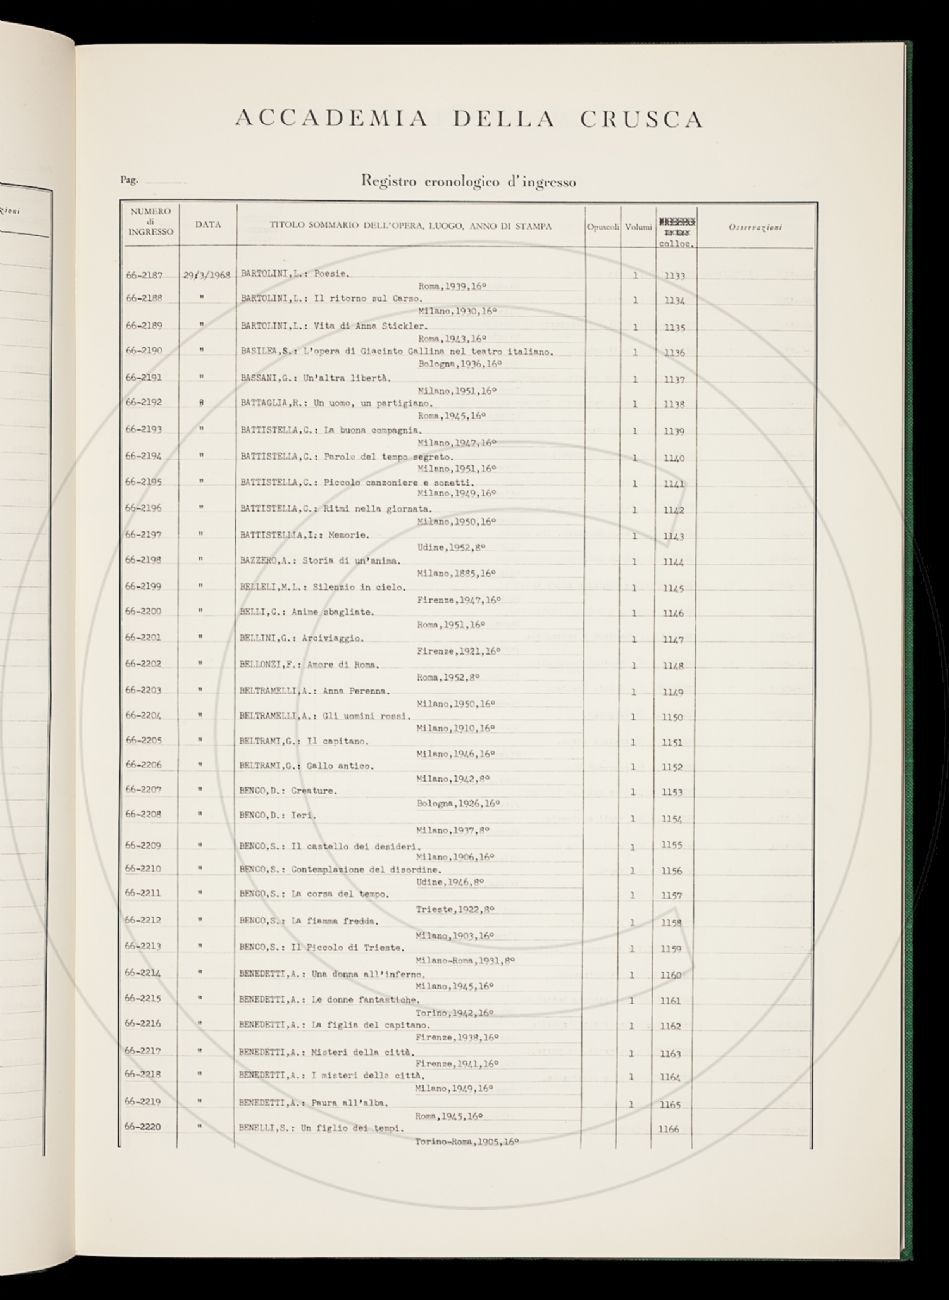 zioni
ACCADEMIA DELLA CRUSCA
Pag.
Registro cronologico d'ingresso
NUMERO di INGRESSO DATA TITOLO SOMMARIO DELL'OPERA, LUOGO, ANNO DI STAMPA Opuscoli Volumi colloc. Osservazioni
66-2187 29/3/1968 BARTOLINI,L.: Poesie. 1 1133
Roma,1939,16º
66-2188 " BARTOLINI,L.: Il ritorno sul Carso. 1 1134
Milano,1930,16º
66-2189 " BARTOLINI,L.: Vita di Anna Stickler. 1 1135
Roma,1943,16º
66-2190 " BASILEA,S.: L'opera di Giacinto Gallina nel teatro italiano. 1 1136
Bologna,1936,16º
66-2191 " BASSANI,G.: Un'altra libertà. 1 1137
Milano,1951,16º
66-2192 " BATTAGLIA,R.: Un uomo, un partigiano. 1 1138
Roma,1945,16º
66-2193 " BATTISTELLA,C.: La buona compagnia. 1 1139
Milano,1947,16º
66-2194 " BATTISTELLA,C.: Parole del tempo segreto. 1 1140
Milano,1951,16º
66-2195 " BATTISTELLA,C.: Piccolo canzoniere e sonetti. 1 1141
Milano,1949,16º
66-2196 " BATTISTELLA,C.: Ritmi nella giornata. 1 1142
Milano,1950,16º
66-2197 " BATTISTELLIA,I.: Memorie. 1 1143
Udine,1952,8º
66-2198 " BAZZERO,A.: Storia di un'anima. 1 1144
Milano,1885,16º
66-2199 " BELLELI,M.L.: Silenzio in cielo. 1 1145
Firenze,1947,16º
66-2200 " BELLI,C.: Anime sbagliate. 1 1146
Roma,1951,16º
66-2201 " BELLINI,G.: Arciviaggio. 1 1147
Firenze,1921,16º
66-2202 " BELLONZI,F.: Amore di Roma. 1 1148
Roma,1952,8º
66-2203 " BELTRAMELLI,A.: Anna Perenna. 1 1149
Milano,1950,16º
66-2204 " BELTRAMELLI,A.: Gli uomini rossi. 1 1150
Milano,1910,16º
66-2205 " BELTRAMI,G.: Il capitano. 1 1151
Milano,1946,16º
66-2206 " BELTRAMI,G.: Gallo antico. 1 1152
Milano,1942,8º
66-2207 " BENCO,D.: Creature. 1 1153
Bologna,1926,16º
66-2208 " BENCO,D.: Ieri. 1 1154
Milano,1937,8º
66-2209 " BENCO,S.: Il castello dei desideri. 1 1155
Milano,1906,16º
66-2210 " BENCO,S.: Contemplazione del disordine. 1 1156
Udine,1946,8º
66-2211 " BENCO,S.: La corsa del tempo. 1 1157
Trieste,1922,8º
66-2212 " BENCO,S.: La fiamma fredda. 1 1158
Milano,1903,16º
66-2213 " BENCO,S.: Il Piccolo di Trieste. 1 1159
Milano-Roma,1931,8º
66-2214 " BENEDETTI,A.: Una donna all'inferno. 1 1160
Milano,1945,16º
66-2215 " BENEDETTI,A.: Le donne fantastiche. 1 1161
Torino,1942,16º
66-2216 " BENEDETTI,A.: La figlia del capitano. 1 1162
Firenze,1938,16º
66-2217 " BENEDETTI,A.: Misteri della città. 1 1163
Firenze,1941,16º
66-2218 " BENEDETTI,A.: I misteri della città. 1 1164
Milano,1949,16º
66-2219 " BENEDETTI,A.: Paura all'alba. 1 1165
Roma,1945,16º
66-2220 " BENELLI,S.: Un figlio dei tempi. 1166
Torino-Roma,1905,16º